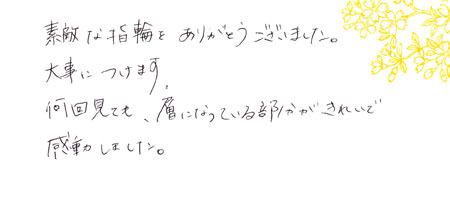 素敵な指輪を ありがとうございました。
大事に つけます。
何回見ても、層になっている部分がきれいで
感動しました。